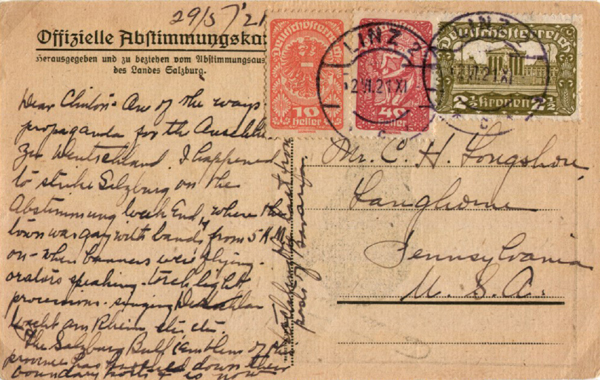 29/5/'21
Offizielle Abstimmungskar
Herausgegeben und zu beziehen vom Abstimmungsaus
des Landes Salzburg.
Deutschösterreich
10
heller
40
heller
Deutschösterreich
2½ Kronen 2½
LINZ 2
2.VI.21.XI
c
LINZ
2.VI.21.XI
c
Dear Clinton - One of the ways
propaganda for the Anschluss
zu Deutschland. I happened
to strike Salzburg on the
Abstimmung week End, where the
town was gay with bands from 5 A.M.
on - when banners were flying.
orators speaking. torch light
processions. singing
Wacht am Rhein, etc etc.
The Salzburg Bull (Emblem of the
province has down their
boundary posts & is now
posts of Bavaria.
Mr. C. H. Longshore,
Langhorne
Pennsylvania
U. S. A.